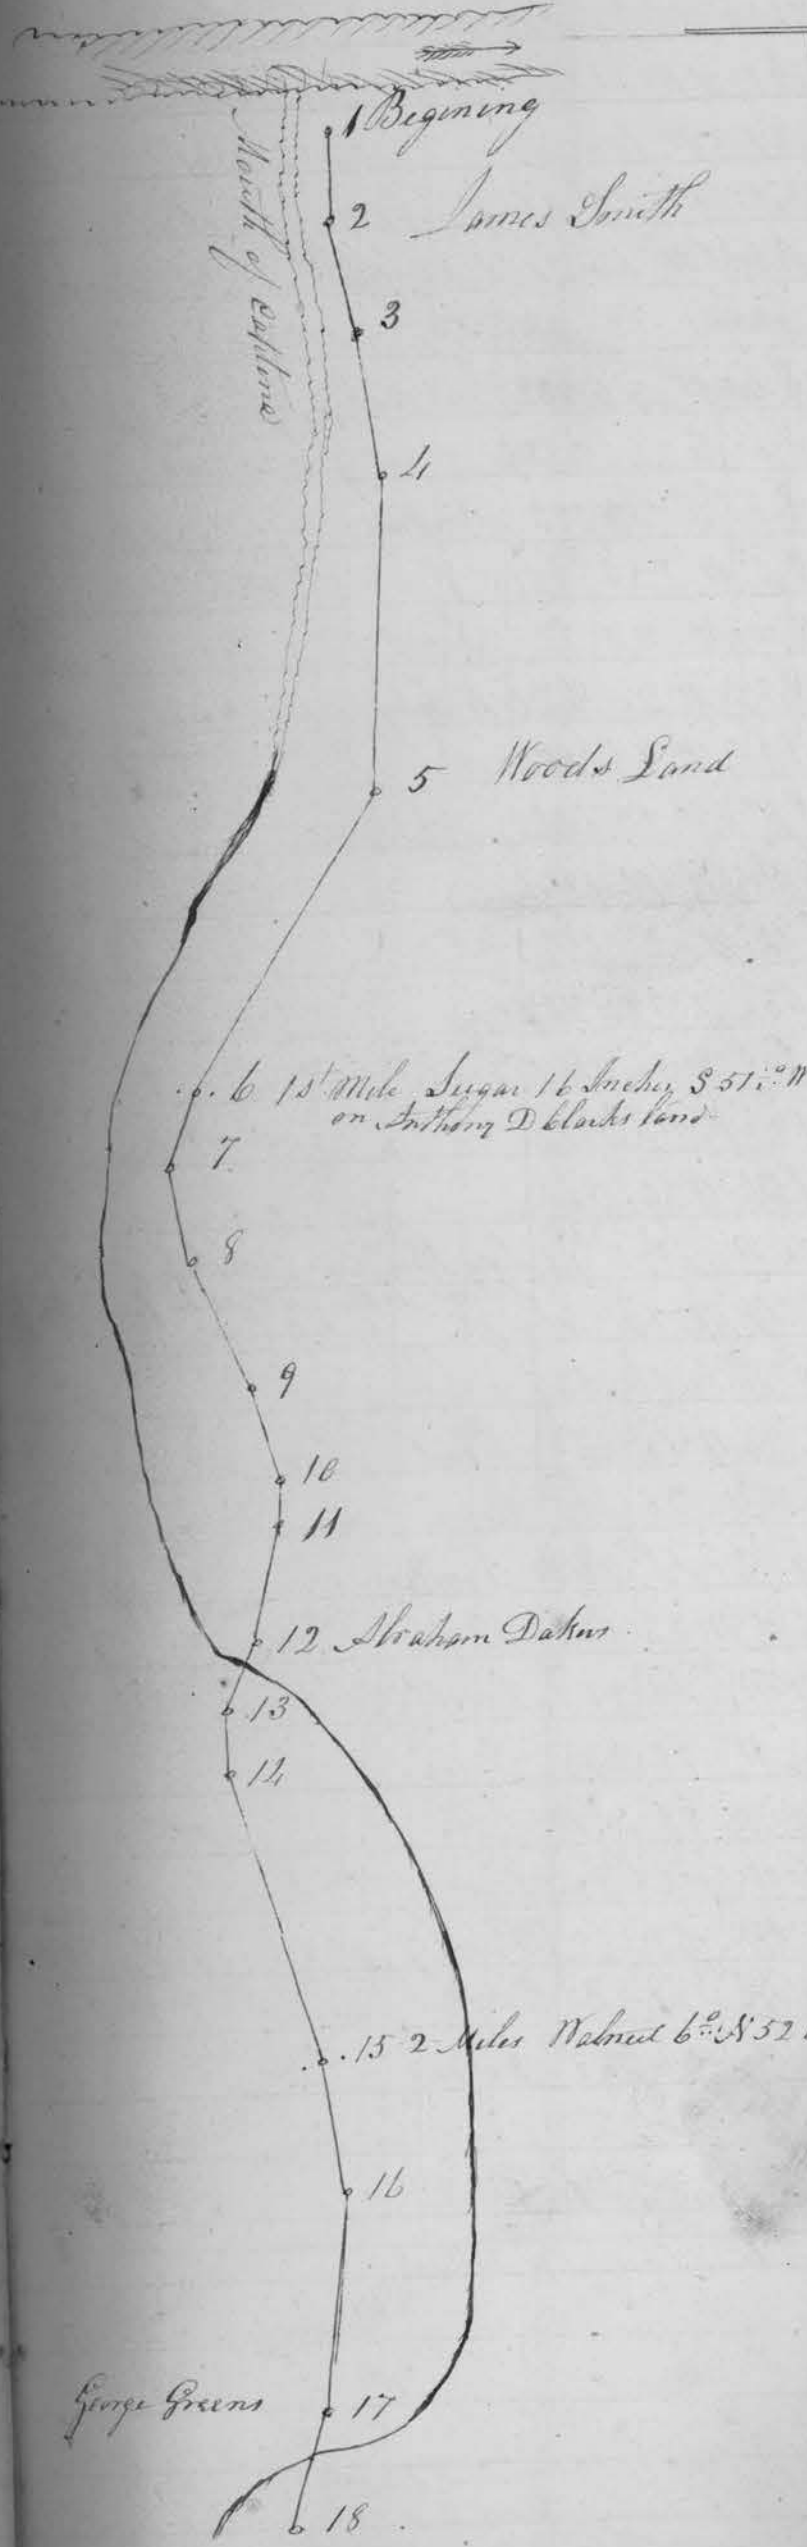 1 Begining
Mouth of Captina
2 James Smith
3
4
5 Woods Land
6 1st Mile Sugar 16 Inches S 51° W
on Anthony D Clarks land
7
8
9
10
11
12 Abraham Dakers
13
14
15 2 Miles Walnut 6° N 52
16
George Greens
17
18